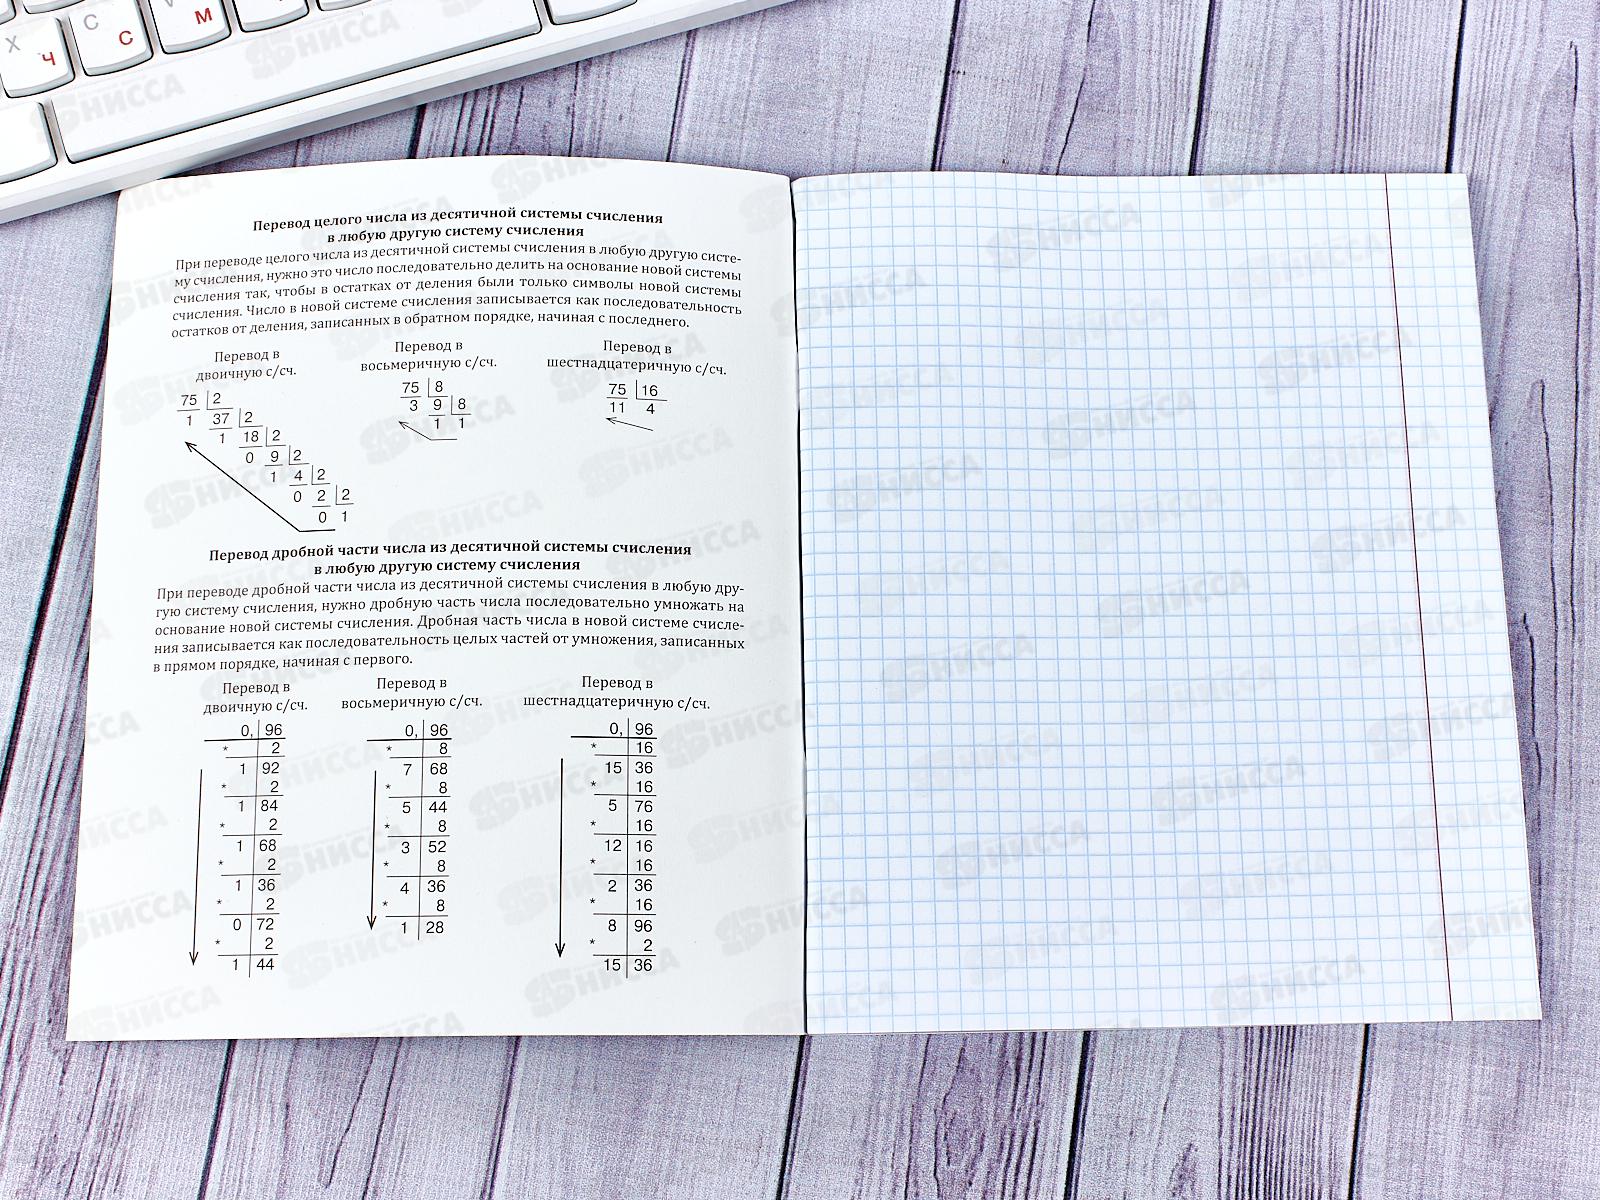 Х С V М
Ч С
Перевод целого числа из десятичной системы счисления
в любую другую систему счисления
При переводе целого числа из десятичной системы счисления в любую другую систе-
му счисления, нужно это число последовательно делить на основание новой системы
счисления так, чтобы в остатках от деления были только символы новой системы
счисления. Число в новой системе счисления записывается как последовательность
остатков от деления, записанных в обратном порядке, начиная с последнего.
Перевод в
двоичную с/сч.
75 2
1 37 2
1 18 2
0 9 2
1 4 2
0 2 2
0 1
Перевод в
восьмеричную с/сч.
75 8
3 9 8
1 1
Перевод в
шестнадцатеричную с/сч.
75 16
11 4
Перевод дробной части числа из десятичной системы счисления
в любую другую систему счисления
При переводе дробной части числа из десятичной системы счисления в любую дру-
гую систему счисления, нужно дробную часть числа последовательно умножать на
основание новой системы счисления. Дробная часть числа в новой системе счисле-
ния записывается как последовательность целых частей от умножения, записанных
в прямом порядке, начиная с первого.
Перевод в
двоичную с/сч.
0, 96
* 2
1 92
* 2
1 84
* 2
1 68
* 2
1 36
* 2
0 72
* 2
1 44
Перевод в
восьмеричную с/сч.
0, 96
* 8
7 68
* 8
5 44
* 8
3 52
* 8
4 36
* 8
1 28
Перевод в
шестнадцатеричную с/сч.
0, 96
* 16
15 36
* 16
5 76
* 16
12 16
* 16
2 36
* 16
8 96
* 2
15 36
НИССА